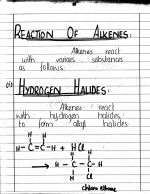 REACTION OF ALKENES:
Alkenes react
with various substances
as follows:
(i) HYDROGEN HALIDES:
Alkenes react
with hydrogen halides
to form alkyl halides
H H
H-C=C-H + HCl
H H
→ H-C-C-H
H Cl
chloro ethane